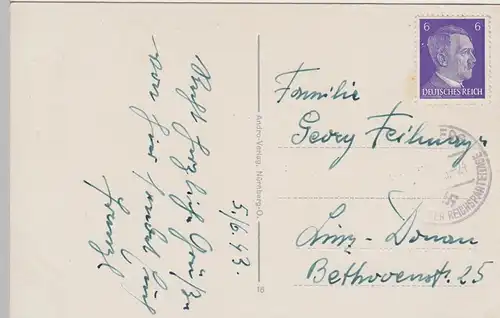 5./6.43.
Recht herzliche Grüße
von hier sendet Euch
Andro-Verlag, Nürnberg-O.
16
6 6
DEUTSCHES REICH
REICHSPARTEITAGE
Familie
Georg Feilmayr
Linz-Donau
Bethovenstr. 25